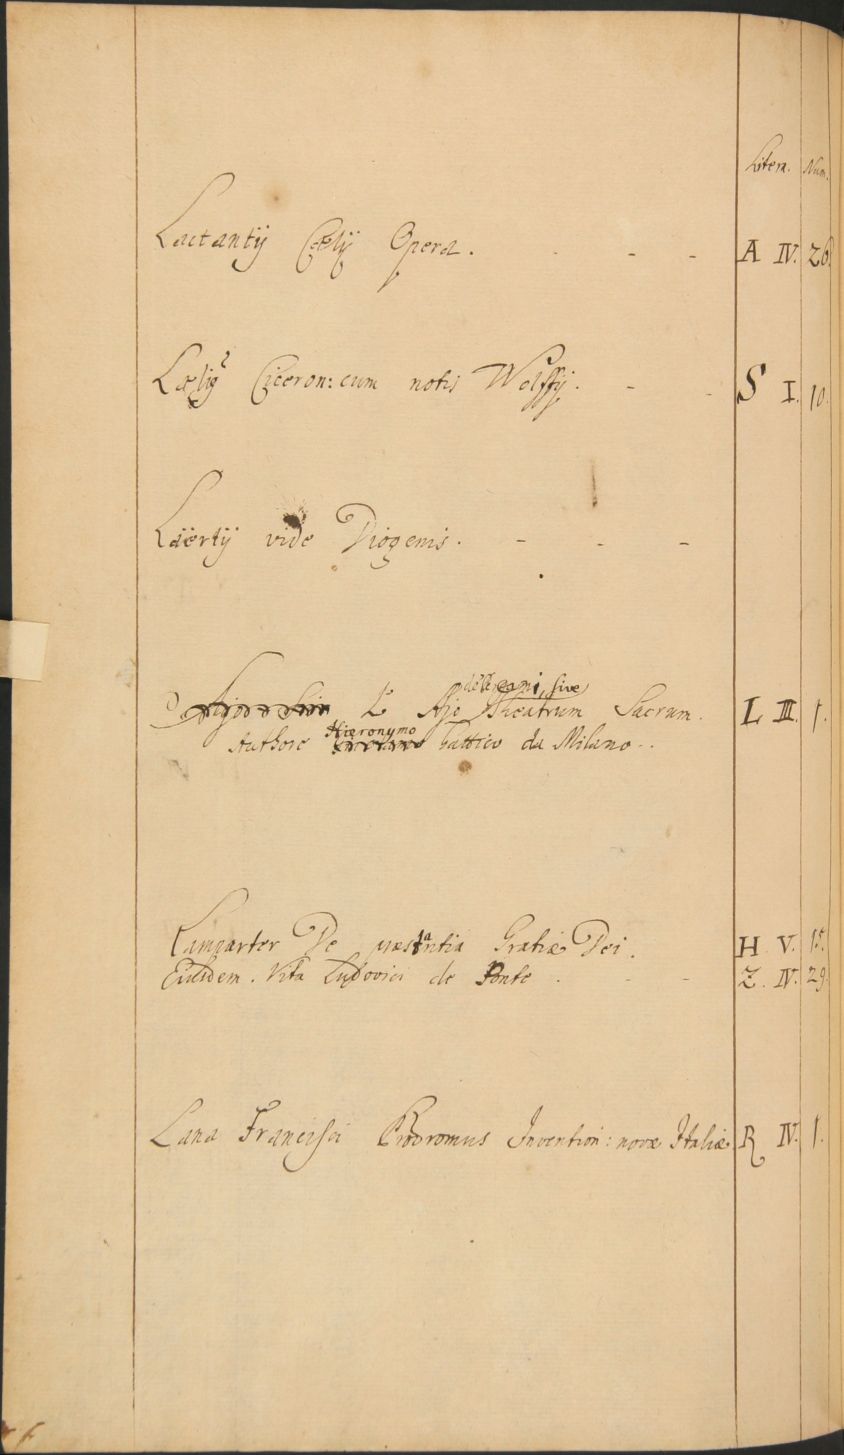 Litera. Num.
Lactantij Cœlij Opera. - - A IV. 26.
Lælig Ciceron: cum notis Wolffij. - S I. 10.
Laërtij vide Diogenis. - - -
L' Aje Theatrum Sacrum. L III. 1.
sive
Hieronymo
Authore da Milano.
Lamparter De præstantia Gratiæ Dei. H V. 15.
Eiusdem. Vita Ludovici de Ponte. - - Z. IV. 29.
Lana Francisci Prodromus Invention: novæ Italiæ R IV. 1.